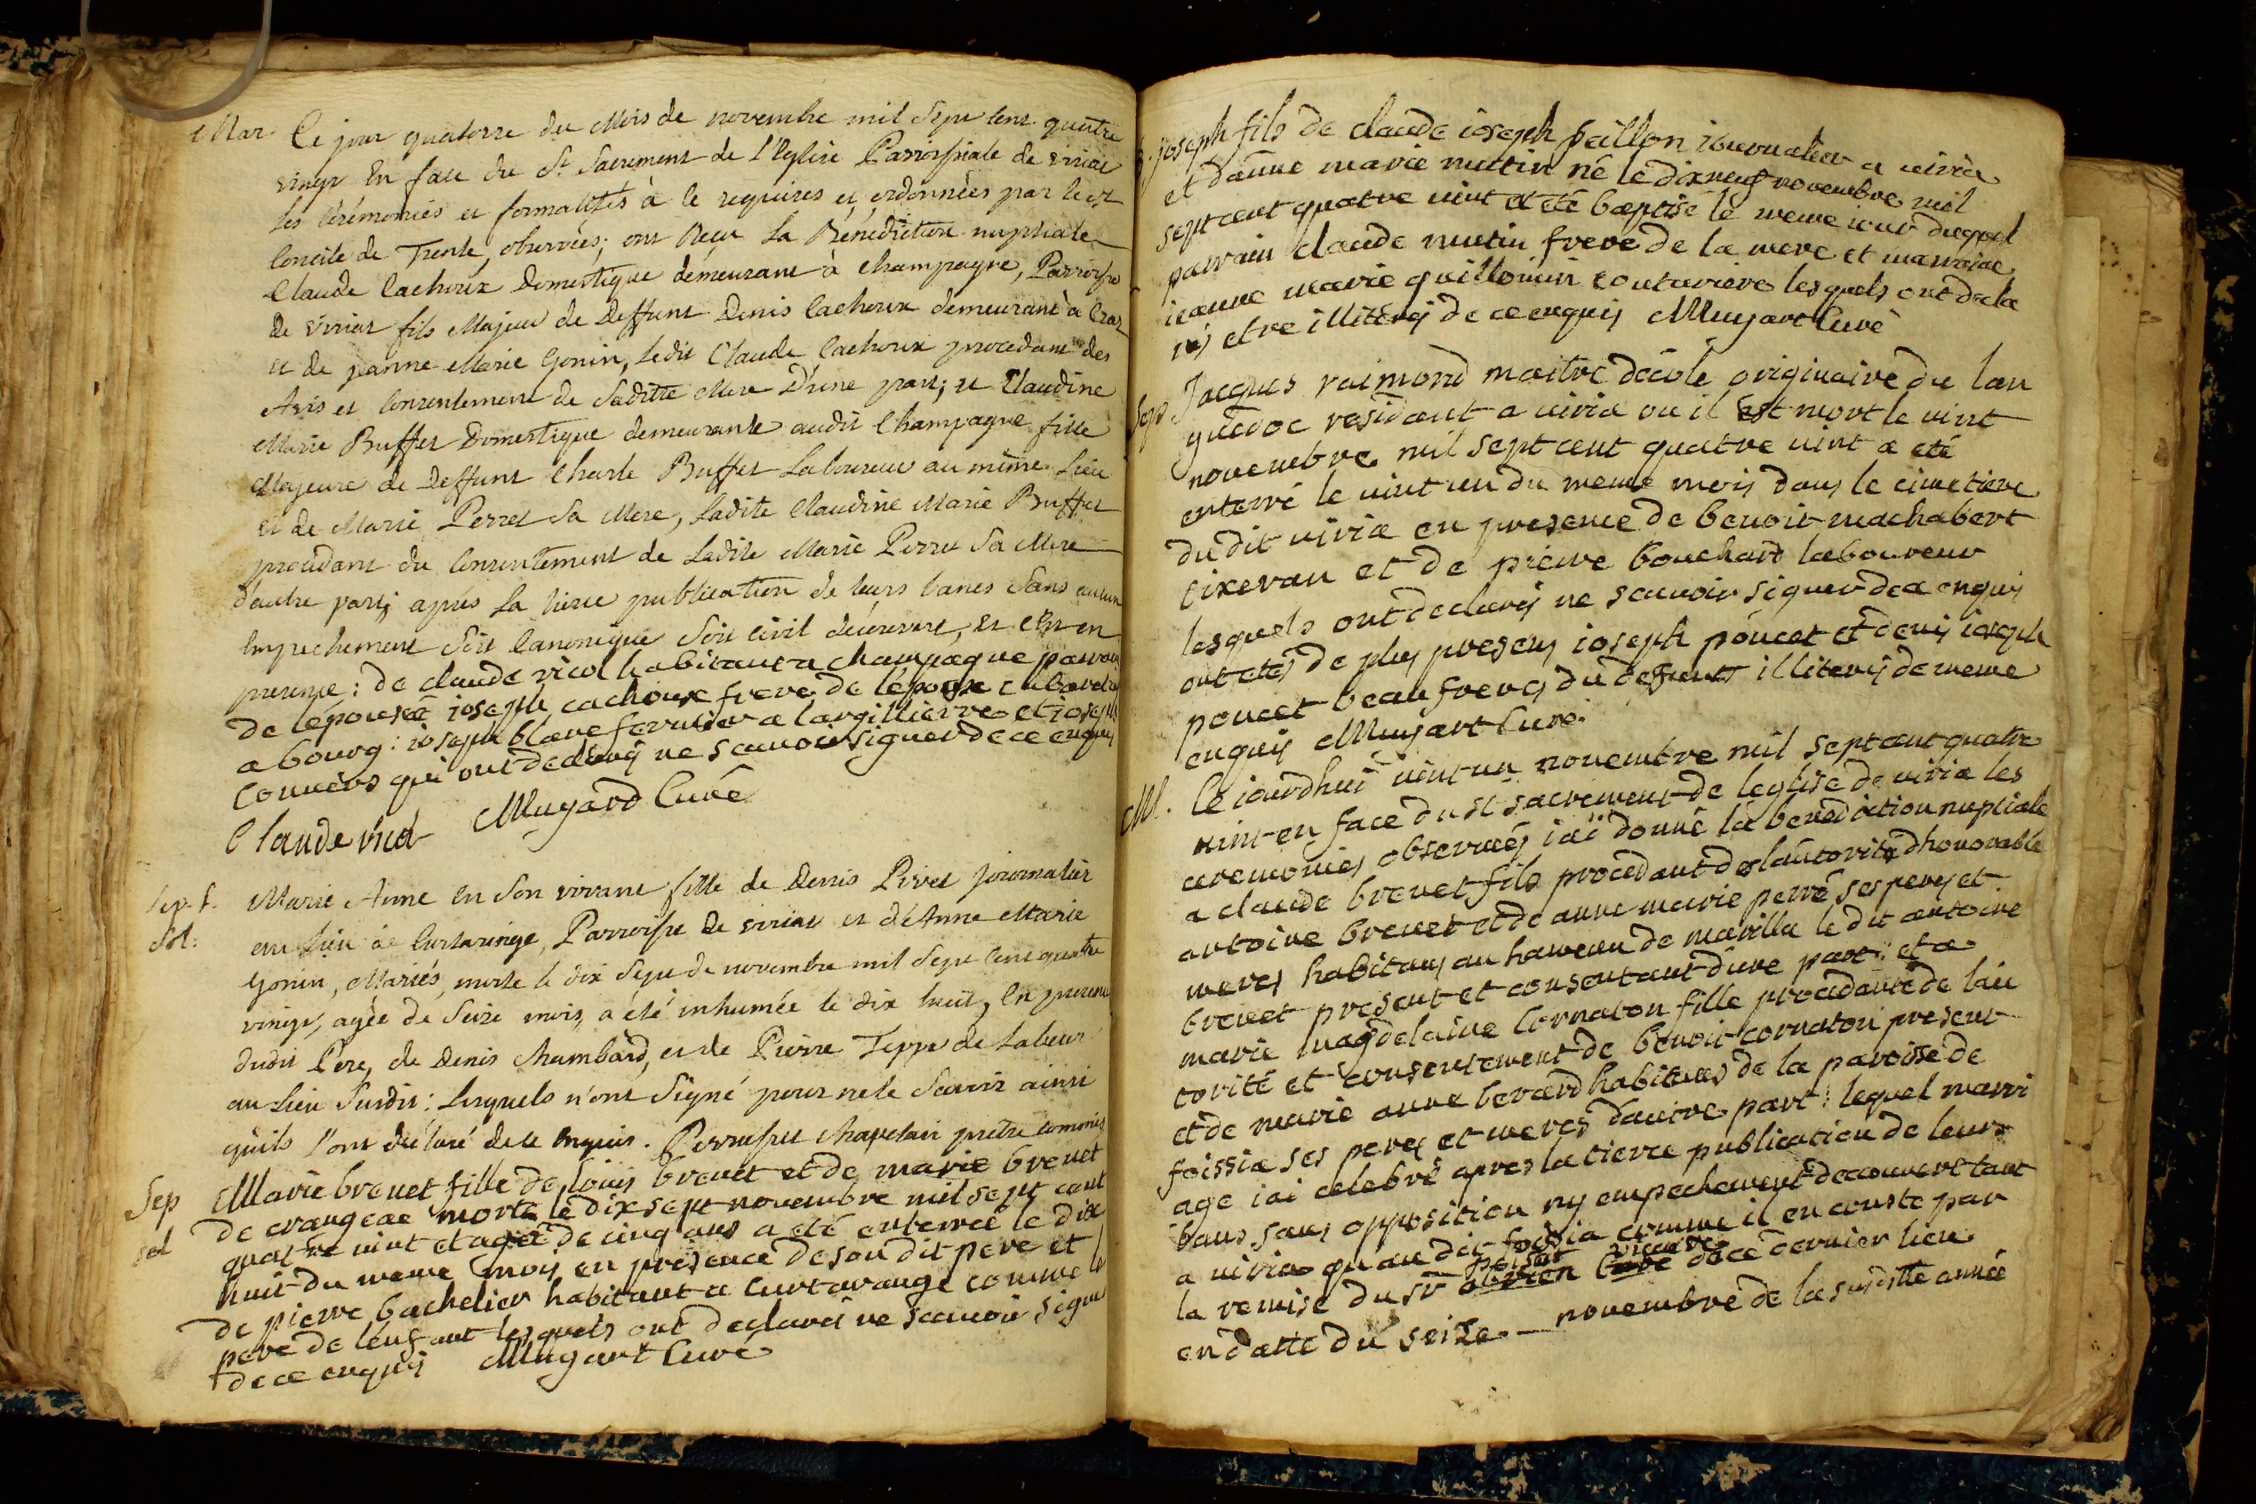 Mar Ce jour quatorze du Mois de novembre mil Sept Cent quatre
vingt En face du St Sacrement de l'Eglise Parroissiale de viriat
les Cérémonies et formalités à ce requises et ordonnées par le st
Concile de Trente observées; ont Reçu La Bénédiction nuptiale
Claude Cachoux Domestique demeurant à Champagne, Parroisse
de viriat fils Majeur de Deffunt Denis Cachoux demeurant à Cras
et de jeanne Marie Gonin, Ledit Claude Cachoux procedant des
Avis et Consentement de Saditte Mere D'une part; et Claudine
Marie Buffet Domestique demeurante audit Champagne fille
Majeure de Deffunt Charle Buffet Laboureur au même Lieu
et de Marie Perret Sa Mere, Ladite Claudine Marie Buffet
procedant du Consentement de Ladite Marie Perret Sa Mere
d'autre part; après La tierce publication de leurs bancs Sans aucun
Empechement Soit Canonique Soit Civil découvert, et Ce en
presence: de claude vicol habitant a champagne parrain
de l'épousée joseph cachoux frere de l'époux
a bourg: joseph blanc fermier a largillierre et joseph
Convers qui ont declaré ne scavoir signer de ce enquis
Claude vicol Mugard Curé
Sep. f. Marie Anne En Son vivant fille de Denis Pivet journalier
au Lieu de Curtaringe, Parroisse de viriat et d'Anne Marie
Gonin, Mariés, morte le dix Sept de novembre mil Sept Cent quatre
vingt, agée de Seize mois, a été inhumée le dix huit, En presence
dudit Père, de Denis Chambard, et de Pierre Teppe de Labeur
au Lieu Susdit: Lesquels n'ont Signé pour ne le Savoir ainsi
quils l'ont déclaré de ce Enquis. chapelain prêtre commis
Sep Marie brevet fille de Louis brevet et de marie brevet
sol de crangeac morte le dixsept novembre mil sept cent
quatre vint et agée de cinq ans a eté enterrée le dix
huit du meme mois en présence de son dit pere et
de pierre bachelier habitant a curtarange comme le
pere de lenfant lesquels ont declaré ne scavoir signer
de ce enquis Mugart Curé
B. joseph fils de claude joseph paillon journalier a viria
et danne marie mutin né le dixneuf novembre mil
sept cent quatre vint et eté baptisé le meme jour duquel
parrain claude mutin frere de la mere et marraine
jeanne marie guillomin couturiere lesquels ont decla
rés etre illiterés de ce enquis Mugart Curé
Sep Jacques raimond maitre décole originaire du lan
guedoc residant a viria ou il est mort le vint
novembre mil sept cent quatre vint a eté
enterré le vint un du meme mois dans le cimetiere
du dit viria en presence de benoit machabert
tixeran et de pierre bouchard laboureur
lesquels ont declarés ne scavoir signer de ce enquis
ont etés de plus presens joseph poncet et denis joseph
poncet beaufreres du defunt illiterés de meme
enquis Mugart Curé.
M. Ce jourdhui vint un novembre mil sept cent quatre
vint en face du st sacrement de leglise de viria les
ceremonies observées jai donné la benediction nuptiale
a claude brevet fils procedant de lautorité dhonorable
antoine brevet et de anne marie perré ses peres et
meres habitans au hameau de marilla le dit antoine
brevet present et consentant dune part: et a
marie magdelaine Cornaton fille procedante de lau
torité et consentement de benoit cornaton present
et de marie anne berard habitans de la paroisse de
foissia ses peres et meres dautre part: lequel marri
age jai celebré apres la tierce publication de leurs
bans sans opposition ny empechement decouvert tant
a viria quau dit foissia comme il en conste par
vicaire
la remise du sr curé de ce dernier lieu
en datte du seize novembre de la susditte année